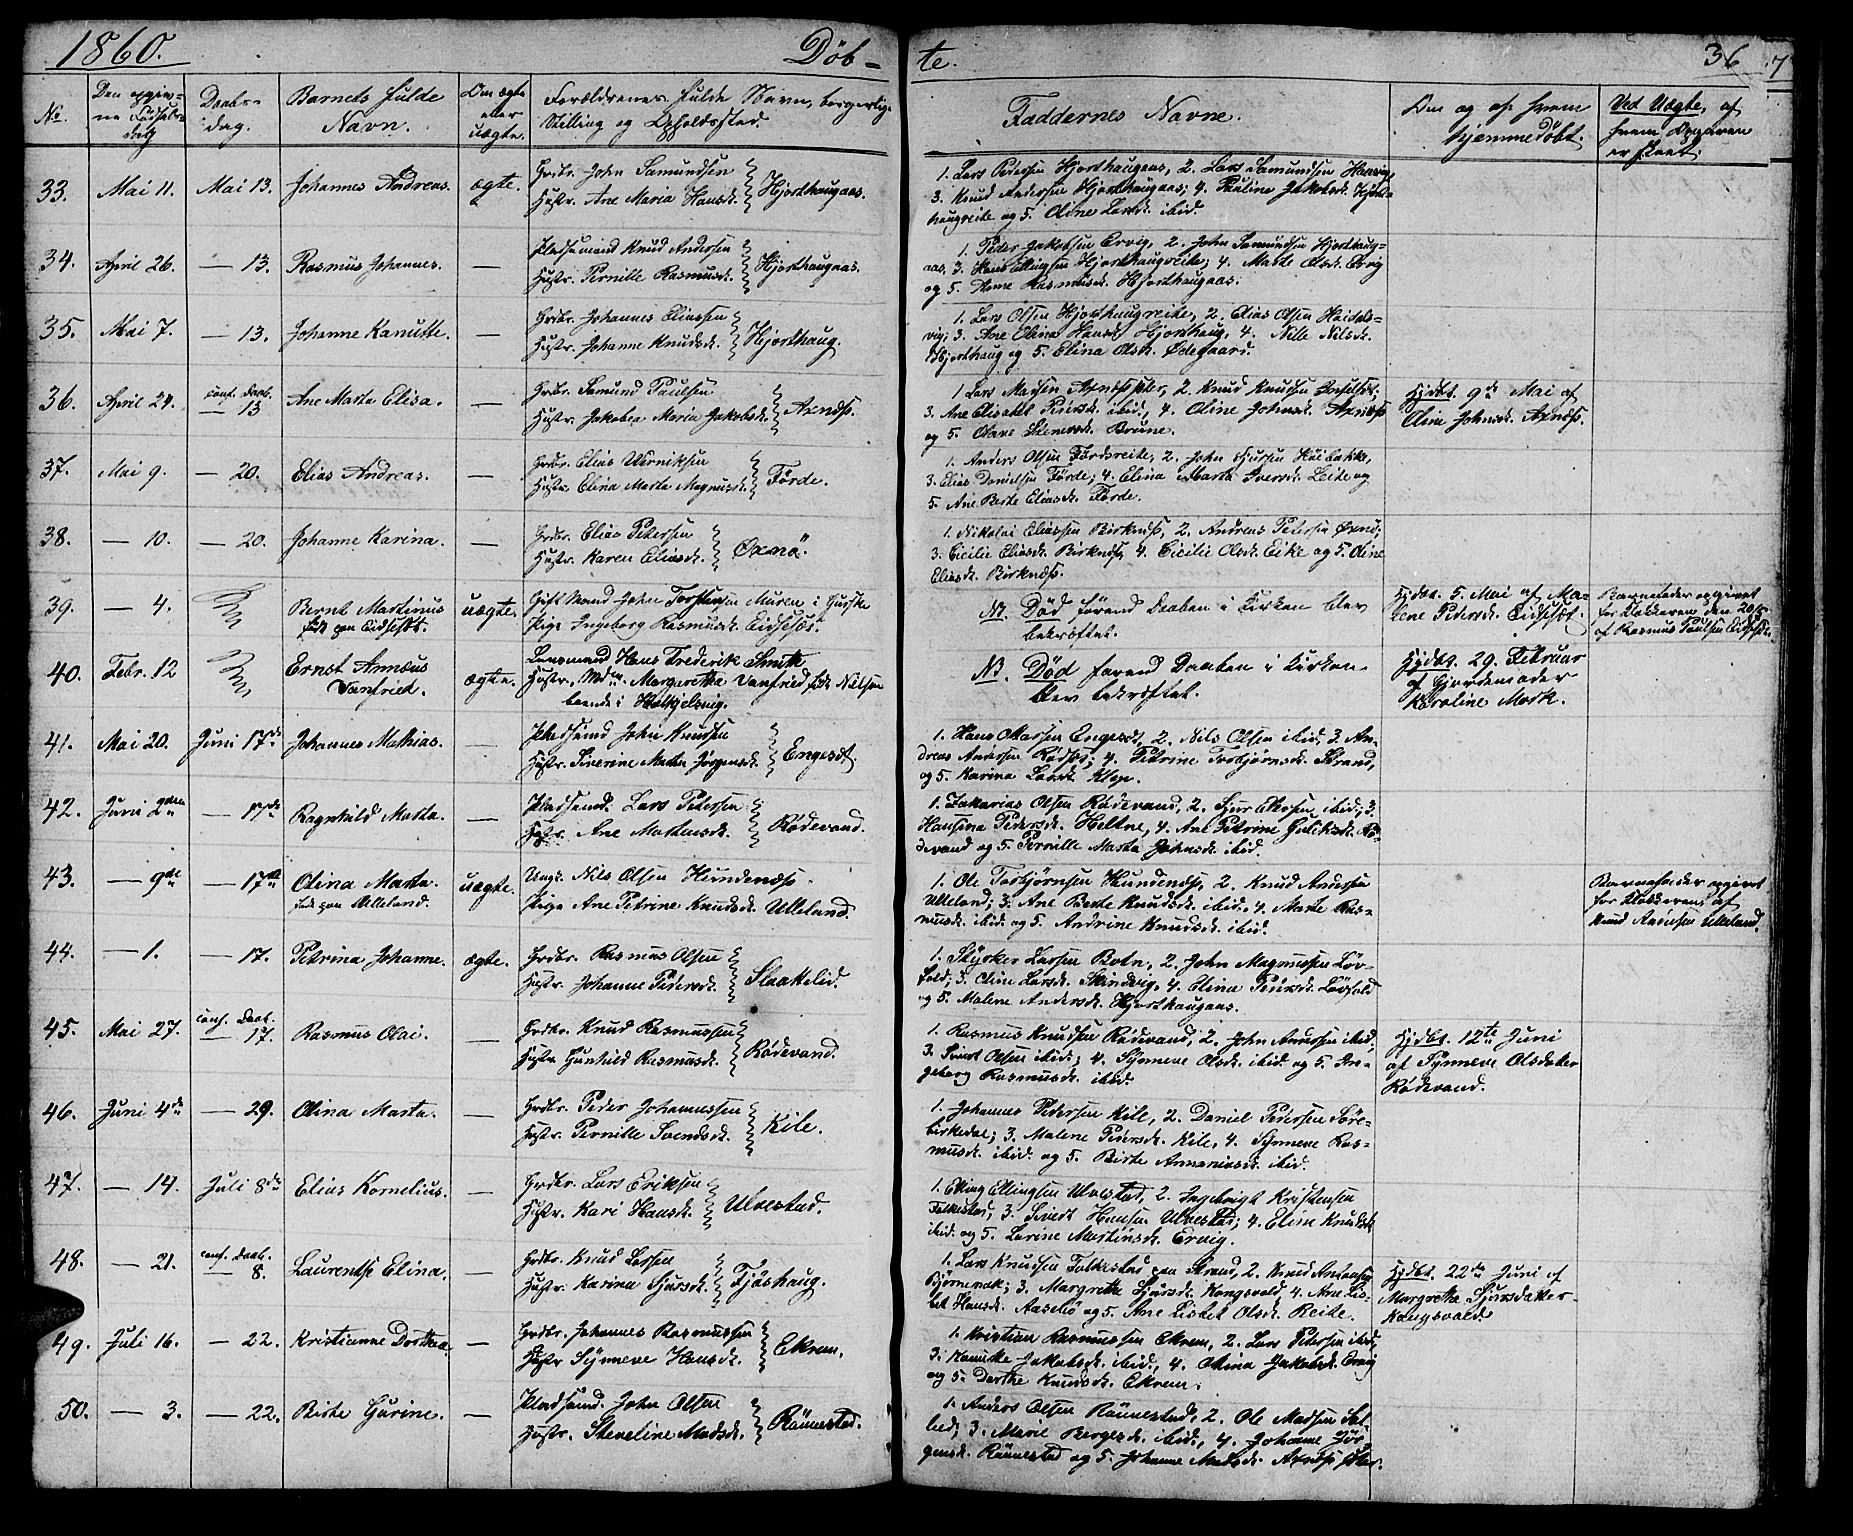 1860. Døb-
te. 36
No. Den opgivne Fødselsdag Daabsdag. Barnets fulde Navn. Om ægte eller uægte. Forældrenes fulde Navn, borgerlige Stilling og Opholdssted. Faddernes Navne. Om og af hvem hjemmedøbt. Ved Uægte, af hvem Opgaven er skeet.
33. Mai 11. Mai 13. Johannes Andreas. ægte. Grdbr. John Samundsen
Hustr. Ane Maria Hansd. Hjorthaugaas.
1. Lars Pedersen Hjorthaugaas, 2. Lars Samundsen
3. Knud Andersen Hjorthaugaas; 4. Pauline Jakobsd. Hjort-
haugreite og 5. Oline Larsd. ibid.
34. April 26. — 13. Rasmus Johannes. — Pladsemand Knud Andersen
Hustr. Pernille Rasmusd. Hjorthaugaas.
1. Peder Jakobsen Ervig, 2. John Samundsen Hjorthaug-
aas, 3. Hans Ellingsen Hjorthaugreite; 4. Marte Olsd. Ervig
og 5. Anne Rasmusd. Hjorthaugaas.
35. Mai 7. — 13. Johanne Kanutte. — Grdbr. Johannes Eliassen
Hustr. Johanne Knudsd. Hjorthaug.
1. Lars Olsen Hjorthaugreite, 2. Elias Olsen Haidals-
vig; 3. Ane Elina Hansd. Hjorthaug, 4. Nille Nilsd.
Hjorthaug og 5. Elina Olsd. Ødegaard.
36. April 24. conf. Daab. — 13 Ane Marta Elisa. — Grdbr. Samund Paulsen
Hustr. Jakobea Maria Jakobsd. Axnæss.
1 Lars Madsen 2. Knud Knudsen
3. Ane Elisabet Pedersd. ibid, 4. Oline Johnsd. Axnæss
og 5. Olave Steinersd. Brune.
Hjdbt. 9de Mai af
Oline Johnsd. Axnæss.
37. Mai 9. — 20. Elias Andreas. — Grdbr. Elias Werniksen
Hustr. Elina Marta Magnusd. Förde.
1. Anders Olsen Førdsreite, 2. John Høibakke,
3. Elias Danielsen Førde; 4. Elina Marta Iversd. Leite og
5. Ane Berte Eliasd. Førde.
38. — 10. — 20. Johanne Karina. — Grdbr. Elias Petersen
Hustr. Karen Eliasd. Øxnö.
1. Nikolai Eliassen Birknæss, 2. Andreas Petersen Øxnö;
3. Cicilie Eliasd. Birknæss, 4. Cicilie Olsd. Eike og 5. Oline
Eliasd. Birknæss.
39. — 4. Bernt Martinus
født paa Eidsesæt. uægte. Gift Mand John Torstensen Muren i Gurske
Pige Ingeborg Rasmusd. Eidsesæt.
NB. Død førend Daaben i Kirken blev
bekræftet.
Hjdbt. 5. Mai af Ma-
lene Petersd. Eidsesæt.
Barnefader opgivet
for Klokkeren den
af Rasmus Paulsen Eidsesæt.
40. Febr. 12 Ernst Annæus
Vanfried. ægte. Lensmand Hans Frederik Smith
Hustr. Madm. Margretha Vanfried født Nilsen
boende i Halkjelsvig.
NB. Død førend Daaben i Kirken
blev bekræftet.
Hjdbt. 29. Februar
af Gjordemoder
Karoline Mork.
41. Mai 20. Juni 17de Johannes Mathias. — Pladsmd John Knudsen
Hustr. Siverine Marta Jørgensd. Engesæt.
1. Hans Madsen Engesæt, 2. Nils Olsen ibid, 3. An-
dreas Andersen Rødsæt; 4. Petrine Torbjørnsd. Strand,
og 5. Karina Larsd. Klep.
42. Juni 2den — 17de Ragnhild Marta. — Pladsmd. Lars Petersen
Hustr. Ane Martensd. Rødevand.
1. Zakarias Olsen Rødevand, 2. Sjur ibid; 3.
Hansina Pedersd. Heltne, 4. Ane Petrine Rø-
devand og 5. Pernille Marta Johnsd. ibid.
43. — 9de — 17de Olina Marta.
født paa Ulleland. uægte. Ungk. Nils Olsen Hundenæss.
Pige Ane Petrine Knudsd. Ulleland.
1. Ole Torbjørnsen Hundenæss, 2. Knud Andersen
Ulleland; 3. Ane Berte Knudsd. ibid. 4. Marte Ras-
musd. ibid og 5. Andrine Knudsd. ibid.
Barnefader opgivet
for Klokkeren af
Knud Andersen Ulleland.
44. — 1. — 17. Petrina Johanne. ægte. Grdbr. Rasmus Olsen
Hustr. Johanne Pedersd. Slaakelid.
1. Styrker Larsen Botn, 2. John Magnussen Löv-
fold; 3. Oline Larsd. Skindvig, 4. Elina Petersd. Lövfold
og 5. Malene Andersd. Hjorthaugaas.
45. Mai 27. conf. Daab. — 17. Rasmus Olai. — Grdbr. Knud Rasmussen
Hustr. Gunhild Rasmusd. Rødevand.
1. Rasmus Knudsen Rødevand, 2. John Andersen ibid,
3. Sivert Olsen ibid; 4. Synneve Olsd. ibid og 5. In-
geborg Rasmusd. ibid.
Hjdbt. 12te Juni
af Synneve Olsdatter
Rødevand.
46. Juni 4de — 29. Olina Marta. — Grdbr. Peder Johannessen
Hustr. Pernille Svendsd. Kile.
1. Johannes Pedersen Kile, 2. Daniel Pedersen Søre-
birkedal; 3. Malene Pedersd. Kile, 4. Synneve Ras-
musd. ibid. og 5. Birte Annaniasd. ibid.
47. — 14. Juli 8de Elias Kornelius. — Grdbr. Lars Eriksen
Hustr. Kari Hansd. Ulvestad.
1. Elling Ellingsen Ulvestad, 2. Ingebrigt Kristensen
Folkestad; 3. Sivert Hansen Ulvestad; 4. Eline Knudsd.
ibid. og 5. Larine Martinsd. Ervig.
48. — 21. conf. Daab. — 8. Laurentse Elina. — Grdbr. Knud Larsen
Hustr. Karina Sjursd. Fjöshaug.
1. Lars Knudsen Folkestad paa Strand, 2. Knud Antonsen
Bjørnenak; 3. Margrethe Sjursd. Kongsvold, 4. Ane Lis-
bet Hansd. Aasebø og 5. Ane Lisbet Olsd. Reite.
Hjdbt. 22de Juni af
Margrethe Sjursdatter
Kongsvold.
49. Juli 16. — 22. Kristianne Dorthea. — Grdbr. Johannes Rasmussen
Hustr Synneve Hansd. Ekrem.
1. Kristian Rasmussen Ekrem, 2. Lars Petersen ibid,
3. Hanneke Jakobsd. ibid, 4. Olina Jakobsd. Ervig
og 5. Dorthe Knudsd. Ekrem.
50. — 3. — 22. Birte Gurine. — Pladsmd. John Olsen
Hustr. Steveline Madsd. Rönnestad.
1. Anders Olsen Rönnestad, 2. Ole Madsen Sol-
lid; 3. Marie Bergesd. ibid, 4. Johanne Jör-
gensd. Rönnestad og 5. Johanne Madsd.